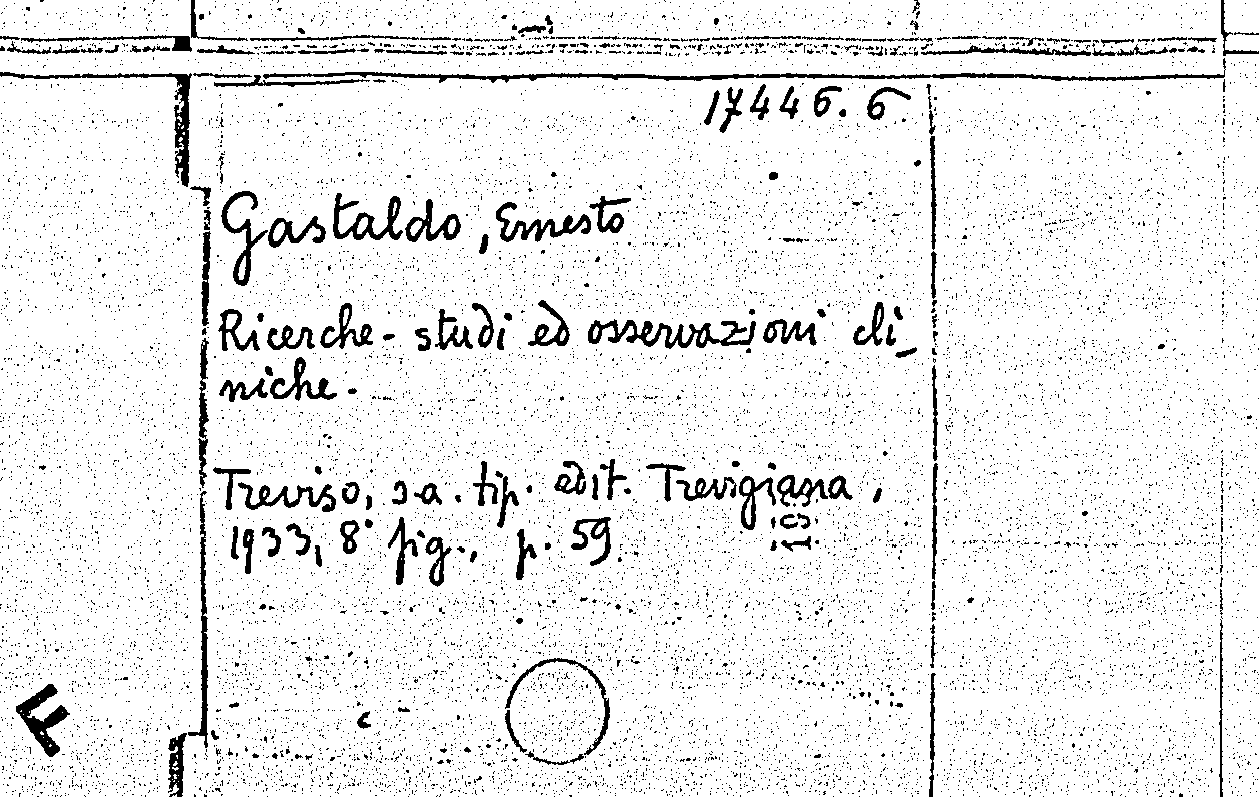 17446.6
Gastaldo, Ernesto
Ricerche - studi ed osservazioni cli_
niche.
Treviso, s.a. tip. edit. Trevigiana,
1933, 8° fig., p. 59
F